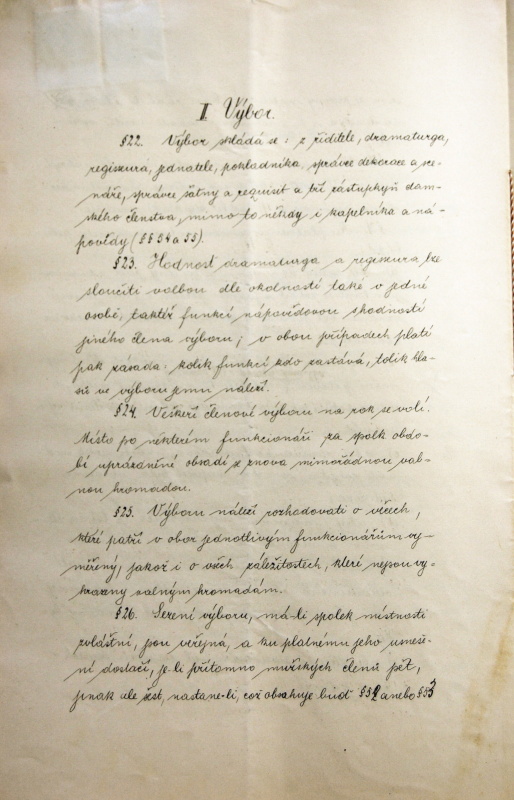 I Výbor.
§22. Výbor skládá se: z řiditele, dramaturga,
regiseura, jednatele, pokladníka, správce dekorace a sce-
náře, správce šatny a requisit a tří zástupkyň dam-
ského členstva, mimo to někdy i kapelníka a ná-
povědy (§§ 54 a 55).
§23. Hodnost dramaturga a regiseura lze
sloučiti volbou dle okolností také v jedné
osobě, taktéž funkci nápovědovou s hodností
jiného člena výboru; v obou případech platí
pak zásada: kolik funkcí kdo zastává, tolik hla-
sů ve výboru jemu náleží.
§24. Veškeří členové výboru na rok se volí.
Místo po některém funkcionáři za spolk. obdo-
bí uprázdněné obsadí se znova mimořádnou val-
nou hromadou.
§25. Výboru náleží rozhodovati o věcech,
které patří v obor jednotlivým funkcionářům vy-
měřený, jakož i o všech záležitostech, které nejsou vy-
hrazeny valným hromadám.
§26. Sezení výboru, má-li spolek místnosti
zvláštní, jsou veřejná, a ku platnému jeho usneše-
ní dostačí, je-li přítomno mužských členů pět,
jinak ale šest, nastane-li, což obsahuje buď §52 anebo §53